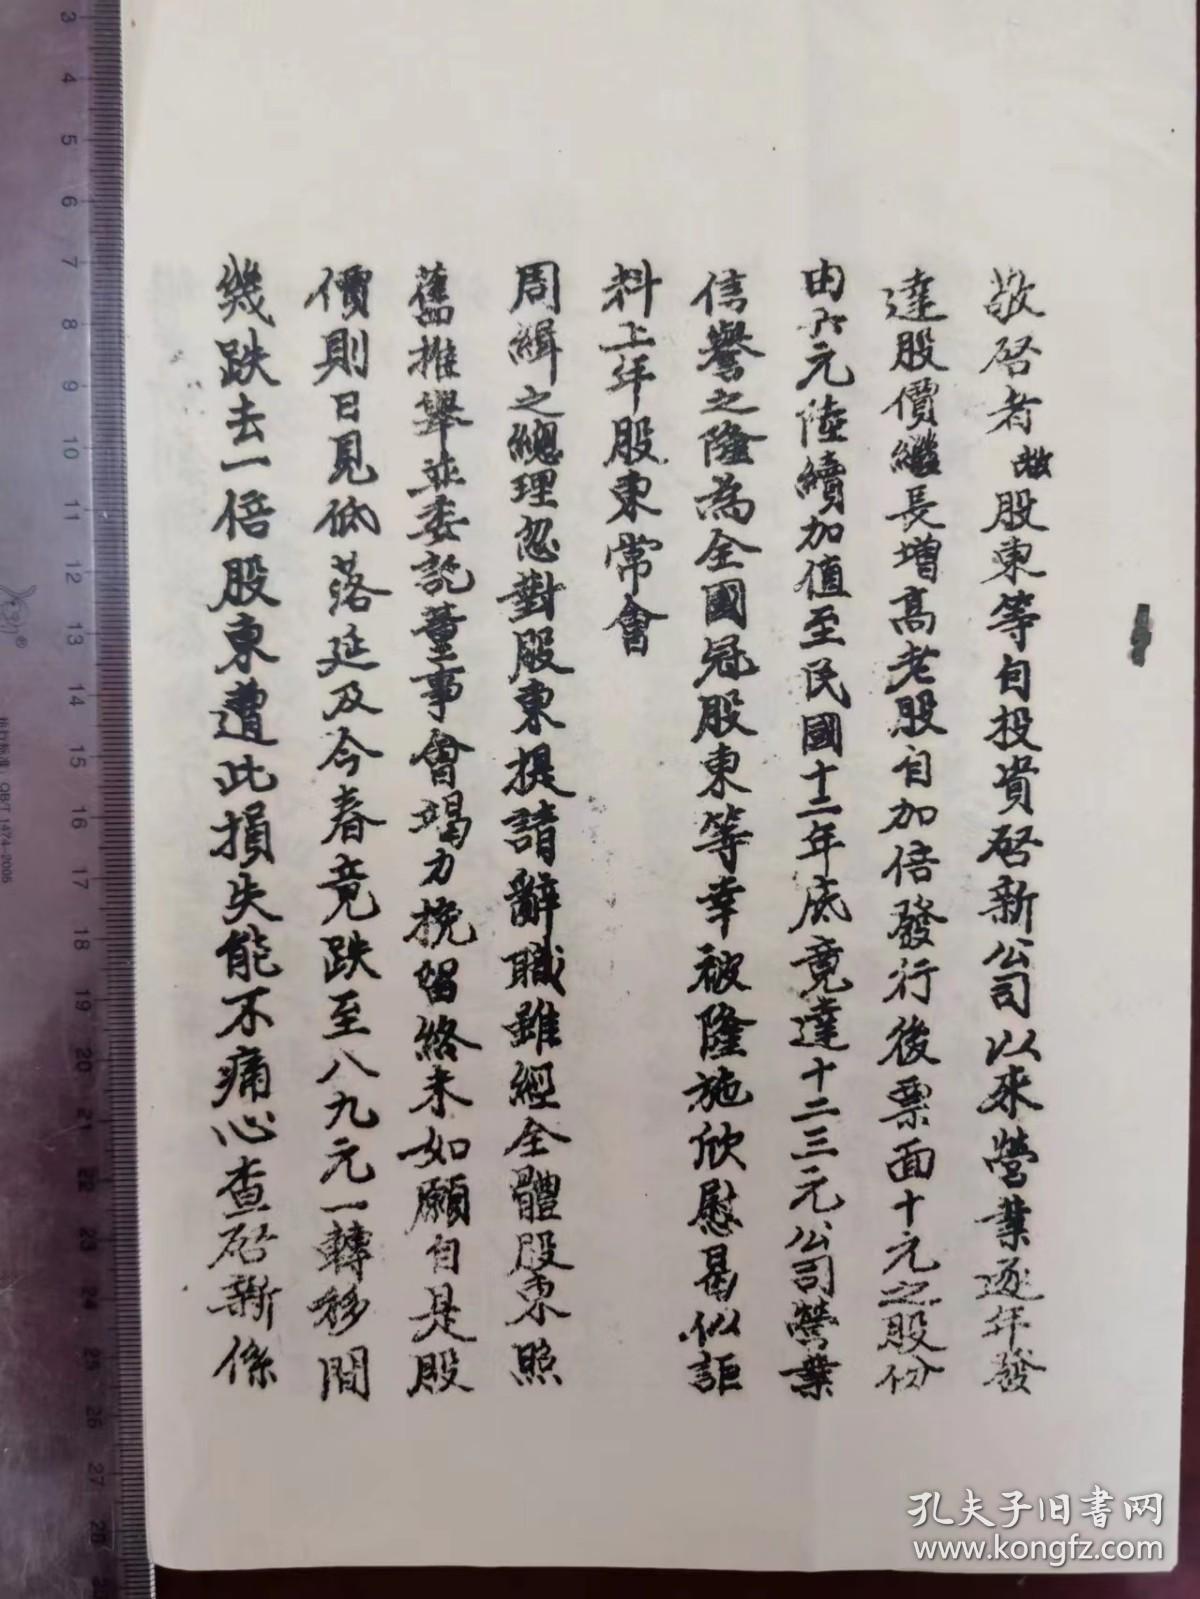 敬啓者敝股東等自投貴啓新公司以來營業逐年發
達股價繼長增高老股自加倍發行後票面十元之股份
由六元陸續加值至民國十二年底竟達十二三元公司營業
信譽之隆為全國冠股東等幸被隆施欣慰曷似詎
料上年股東常會
周緝之總理忽對股東提請辭職雖經全體股東照
舊推舉並委託董事會竭力挽留終未如願自是股
價則日見低落延及今春竟跌至八九元一轉移間
幾跌去一倍股東遭此損失能不痛心查啓新係
3
4
5
6
7
8
9
10
11
12
13
14
15
16
17
18
19
20
21
22
23
24
25
26
27
28
®
执行标准:QB/T 1474-2005
孔夫子旧书网
www.kongfz.com